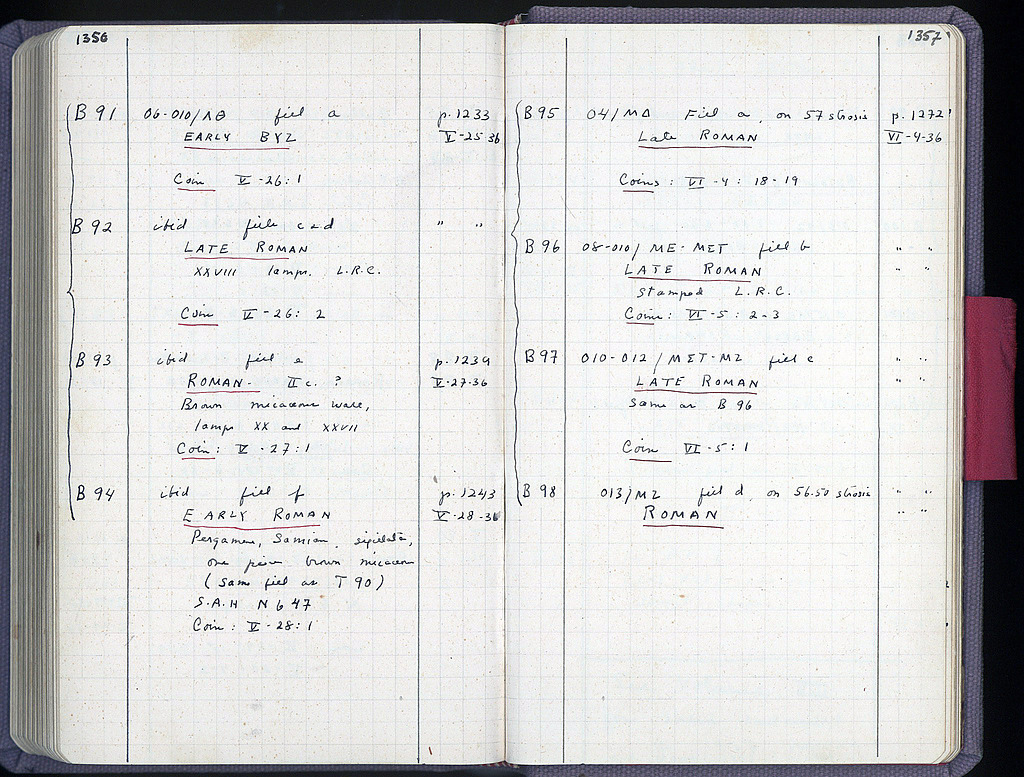 1356
B 91 06-010/ΛΘ fill a p. 1233
EARLY BYZ V-25-36
Coin V-26:1
B 92 ibid fills c+d " "
LATE ROMAN
XXVIII lamps. L.R.C.
Coin V-26: 2
B 93 ibid fill e p. 1239
ROMAN - II c. ? V-27-36
Brown micaceous ware,
lamps XX and XXVII
Coin: V-27:1
B 94 ibid fill f p. 1243
EARLY ROMAN V-28-36
Pergamene, Samian, sigillata,
one piece brown micaceous
(same fill as T 90)
S.A.H N 647
Coin: V-28:1
1357
B 95 04/ΜΔ Fill a, on 57 strosis p. 1272
Late ROMAN VI-4-36
Coins: VI-4: 18-19
B 96 08-010/ ΜΕ-ΜΣΤ fill b " "
LATE ROMAN " "
Stamped L.R.C.
Coins: VI-5: 2-3
B 97 010-012/ΜΣΤ-ΜΖ fill c " "
LATE ROMAN " "
Same as B 96
Coin VI-5:1
B 98 013/ΜΖ fill d, on 56.50 strosis " "
ROMAN " "